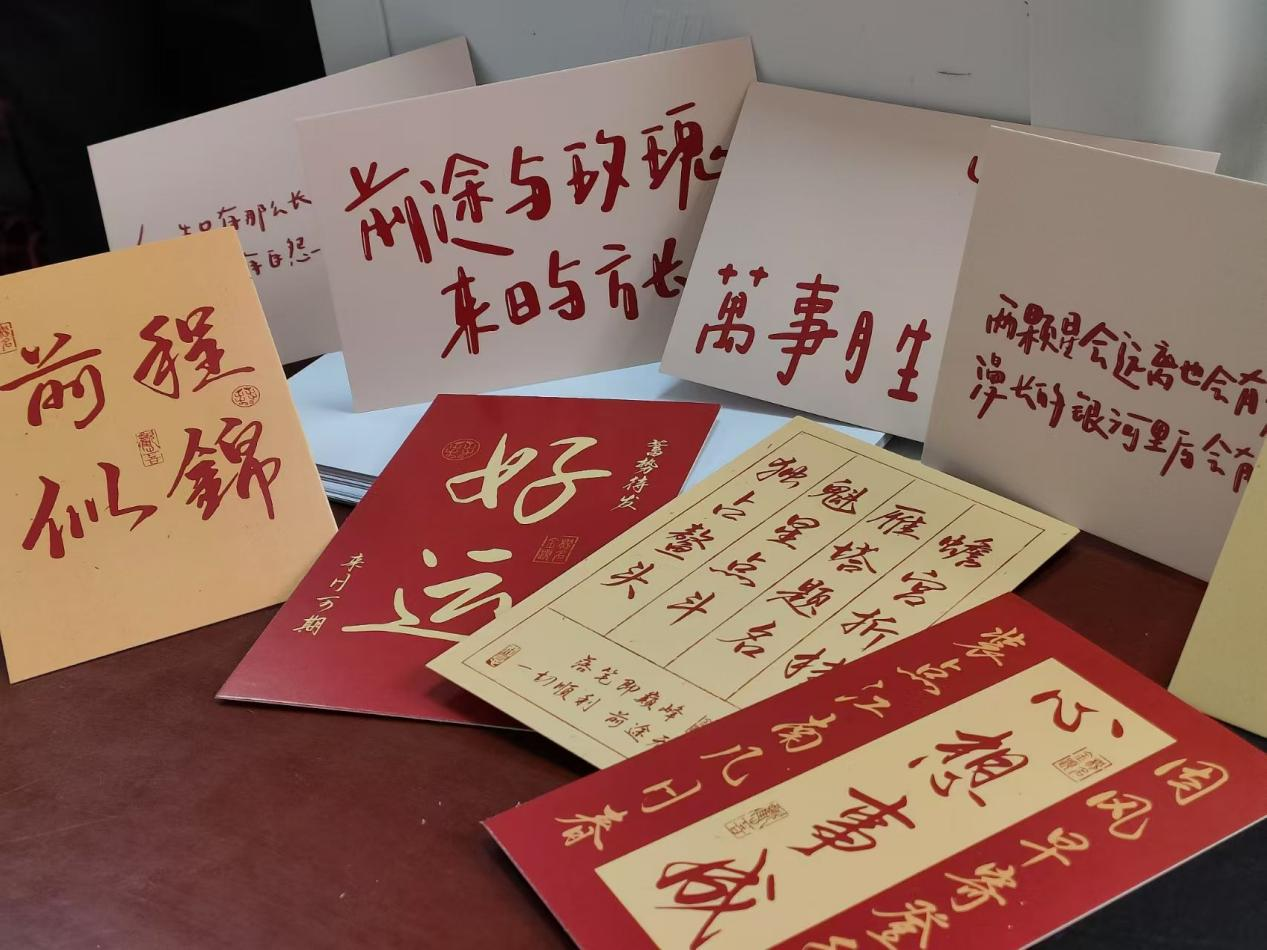 生只有那么长
自怨
前途与玫瑰
来日与方长
萬事月生
两颗星会远离也会有
漫长的银河里后会有
前程
似錦
好运
蓄势待发
来日可期
蟾宫折桂
雁塔题名
魁星点斗
独占鳌头
落笔即巅峰
一切顺利 前途
心想事成
装点江南几月春
周风早寄登